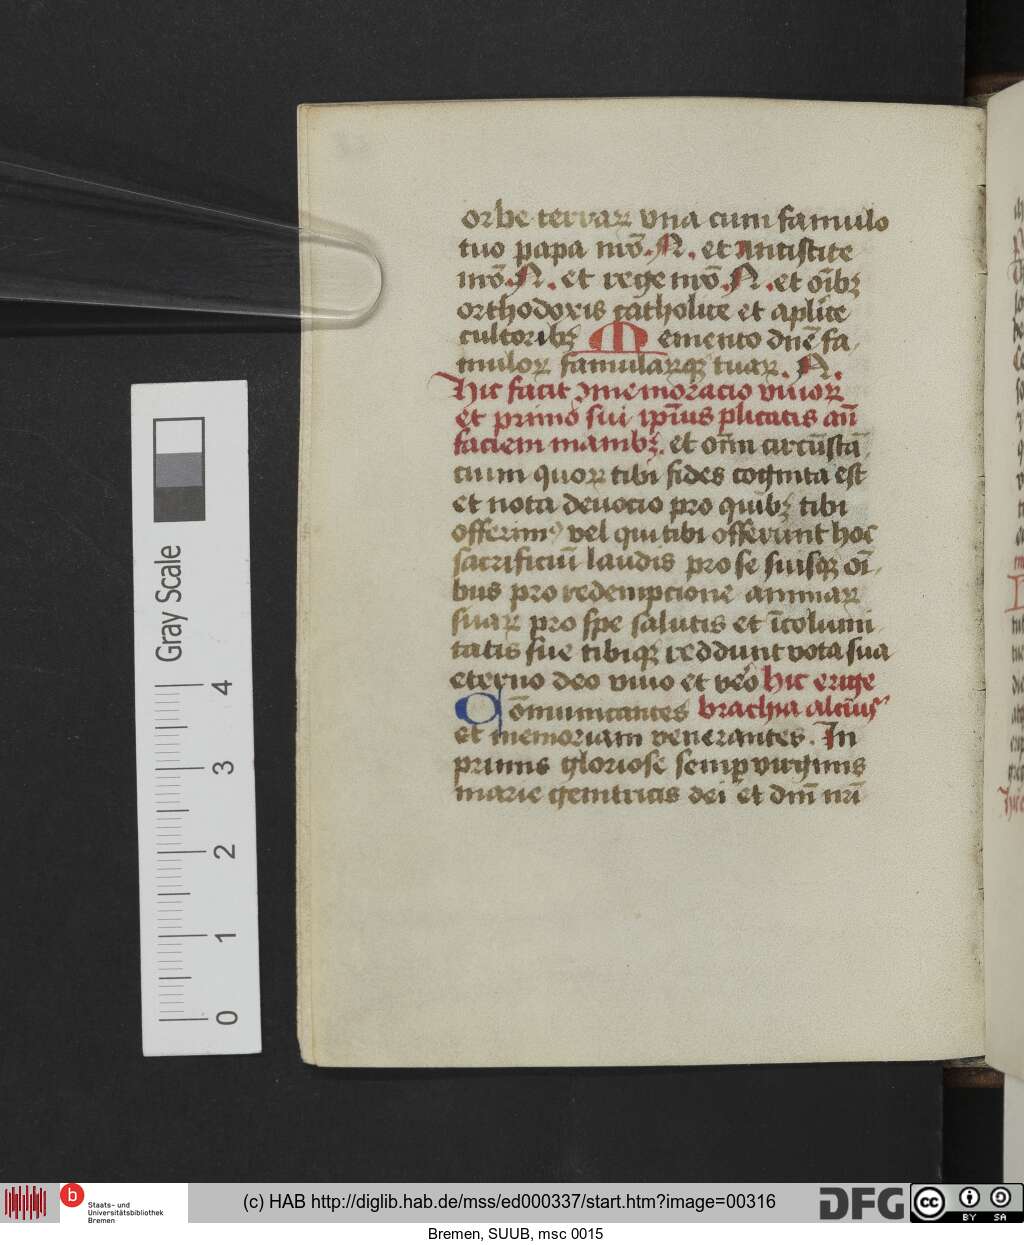 orbe terrarꝝ vna cum famulo
tuo papa nr̄o .N. et Antistite
nr̄o .N. et rege nr̄o .N. et oīb𝔷
orthodoxis catholice et aplice
cultorib𝔷 Memento dn̄e fa
mulorꝝ famularꝝq𝔷 tuarꝝ .N.
hic facit ꝯmemoracio viuorꝝ
et primo sui ip̄ius plicatis an̄
faciem manib𝔷. et om̄ circūstā
cium quorꝝ tibi fides cognita est
et nota deuocio pro quib𝔷 tibi
offerimꝰ vel qui tibi offerunt hoc
sacrificiū laudis pro se suisq𝔷 oī
bus pro redempcione animarꝝ
suarꝝ pro spe salutis et īcolumi
tatis sue tibiq𝔷 reddunt vota sua
eterno deo viuo et vēo hic erige
Cōmunicantes brachia alciusꝰ
et memoriam venerantes. In
primis gloriose semꝑ virginis
marie genitricis dei et dn̄i nr̄i
Gray Scale
4
3
2
1
0
b Staats- und
Universitätsbibliothek
Bremen
(c) HAB http://diglib.hab.de/mss/ed000337/start.htm?image=00316
DFG
cc BY SA
Bremen, SUUB, msc 0015